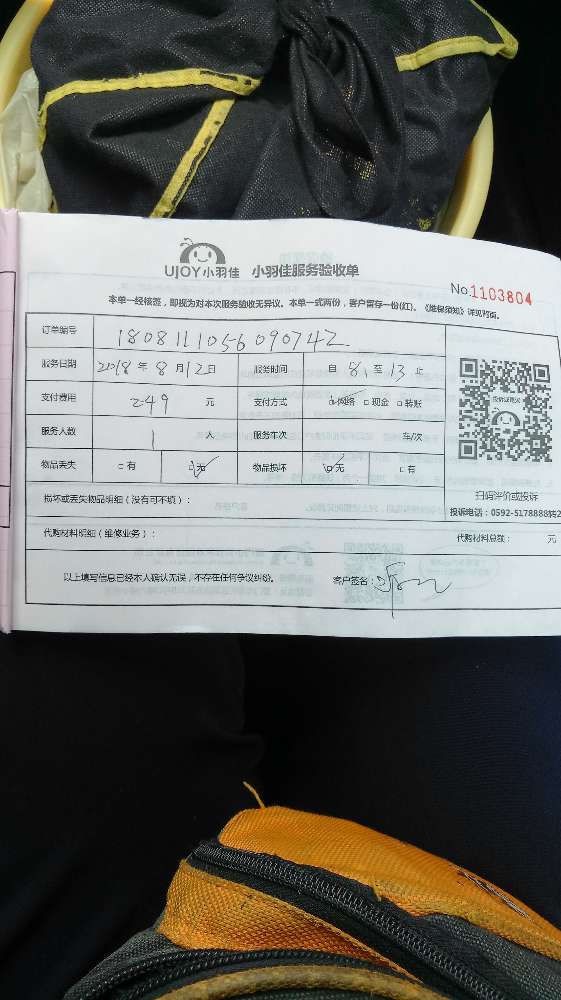 UJOY小羽佳 小羽佳服务验收单
No.1103804
本单一经核签，即视为对本次服务验收无异议。本单一式两份，客户留存一份(红)。《维保须知》详见背面。
订单编号 1808111056090742
服务日期 2018年8月12日 服务时间 自8至13止
支付费用 249元 支付方式 □网络 □现金 □转账
服务人数 1人 服务车次 车/次
物品丢失 □有 □无 物品损坏 □无 □有
扫码评价或投诉
损坏或丢失物品明细（没有可不填）：
投诉电话：0592-5178888转2
代购材料明细（维修业务）： 代购材料总额： 元
以上填写信息已经本人确认无误，不存在任何争议纠纷。 客户签名：